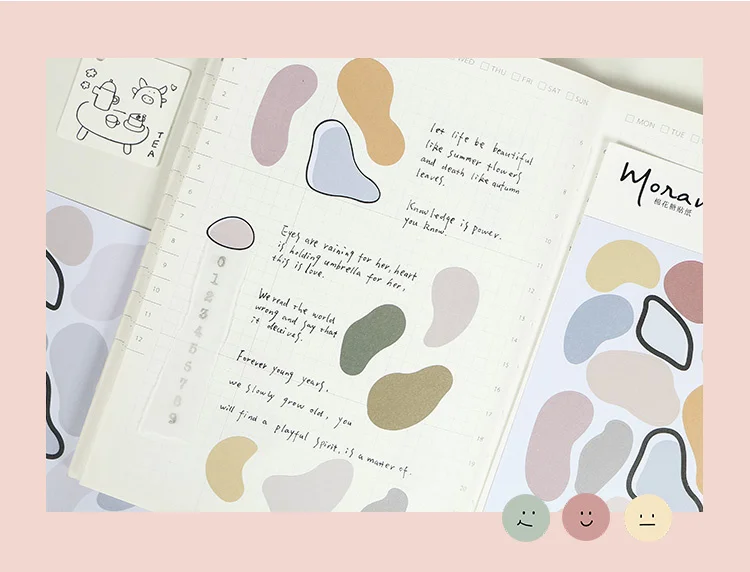 WED THU FRI SAT SUN
MON TUE
TEA
let life be beautiful
like summer flowers
and death like autumn
leaves.
Knowledge is power.
you know.
Eyes are raining for her, heart
is holding umbrella for her,
this is love.
We read the world
wrong and say that
it deceives.
Forever young years,
we slowly grow old, you
will find a playful spirit. is a matter of.
0
1
2
3
4
5
6
7
8
9
Moran